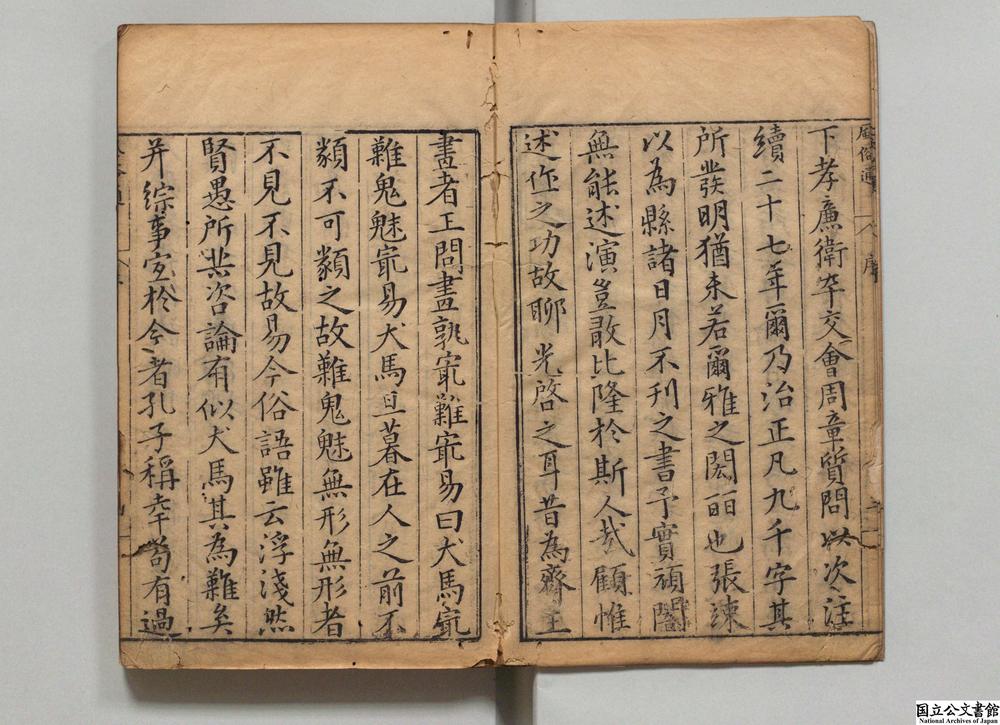 風俗通 序
下孝廉衛卒交會周章質問以次注
續二十七年爾乃治正凡九千字其
所發明猶未若爾雅之閎麗也張竦
以為縣諸日月不刊之書予實頑闇
無能述演豈敢比隆於斯人哉顧惟
述作之功故聊光啓之耳昔為齊王
畫者王問畫孰冣難冣易曰犬馬冣
難鬼魅冣易犬馬旦暮在人之前不
類不可類之故難鬼魅無形無形者
不見不見故易今俗語雖云浮淺然
賢愚所共咨論有似犬馬其為難矣
并綜事宜於今者孔子稱幸苟有過
国立公文書館
National Archives of Japan